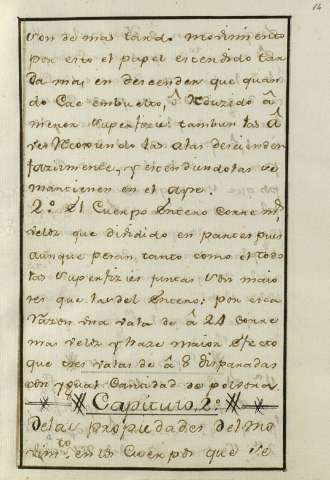 14
son de mas tardo movimiento
por esto el papel estendido tar
da mas en descender que quan
do Cae embuelto, ô Reduzido â
menor superficie: tambien las A
ves Recogiendo las alas descienden
facilmente, y estendiendolas se
mantienen en el ayre.
2.º El Cuerpo Entero corre mas
veloz que dividido en partes pues
aunque pesan tanto como el todo
las superfizies juntas son maio
res que las del Entero: por esta
razon una vala de â 24 corre
mas veloz y haze maior efecto
que tres valas de â 8 disparadas
con ygual Cantidad de polvora
Capitulo 2.º
De las Propiedades del mo
vim.to en los Cuerpos que se